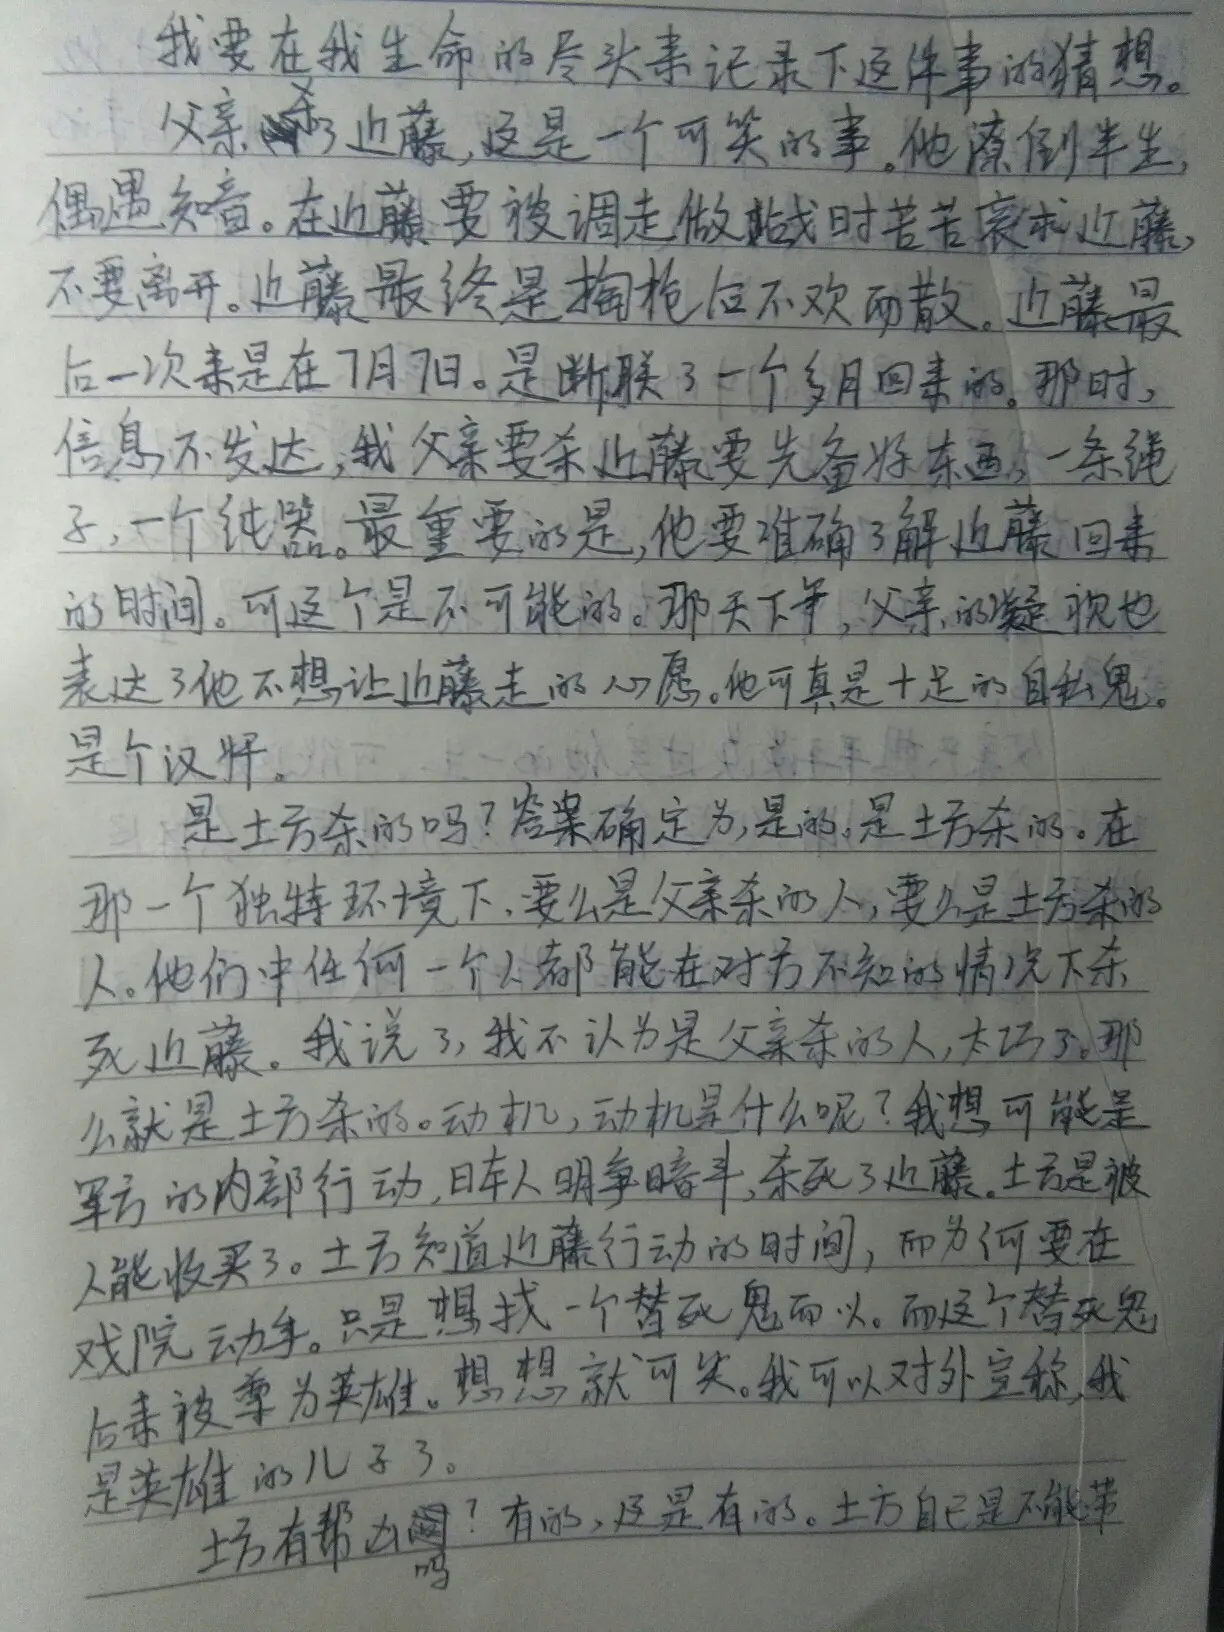 我要在我生命的尽头来记录下这件事的猜想。
父亲杀了近藤,这是一个可笑的事。他潦倒半生,
偶遇知音。在近藤要被调走做战时苦苦哀求近藤,
不要离开。近藤最终是掏枪后不欢而散。近藤最
后一次来是在7月7日。是断联了一个多月回来的。那时,
信息不发达,我父亲要杀近藤要先备好东西,一条绳
子,一个钝器。最重要的是,他要准确了解近藤回来
的时间。可这个是不可能的。那天下午,父亲的凝视也
表达了他不想让近藤走的心愿。他可真是十足的自私鬼。
是个汉奸。
是土方杀的吗?答案确定为,是的。是土方杀的。在
那一个独特环境下,要么是父亲杀的人,要么是土方杀的
人。他们中任何一个人都能在对方不知的情况下杀
死近藤。我说了,我不认为是父亲杀的人,太巧了。那
么就是土方杀的。动机,动机是什么呢?我想可能是
军方的内部行动,日本人明争暗斗,杀死了近藤。土方是被
人能收买了。土方知道近藤行动的时间,而为何要在
戏院动手。只是想找一个替死鬼而以。而这个替死鬼
后来被尊为英雄。想想就可笑。我可以对外宣称,我
是英雄的儿子了。
土方有帮凶吗?有的,这是有的。土方自己是不能带